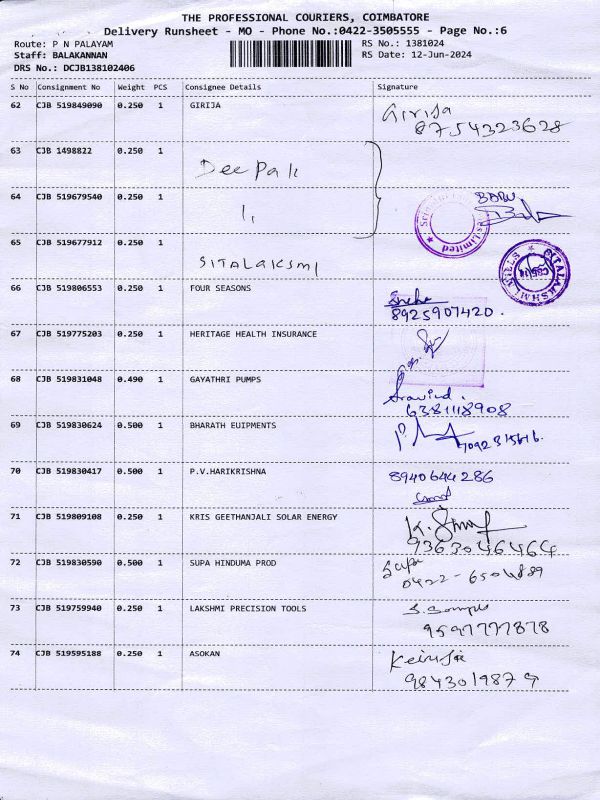 THE PROFESSIONAL COURIERS, COIMBATORE
Delivery Runsheet - MO - Phone No.:0422-3505555 - Page No.:6
Route: P N PALAYAM RS No.: 1381024
Staff: BALAKANNAN RS Date: 12-Jun-2024
DRS No.: DCJB138102406
S No Consignment No Weight PCS Consignee Details Signature
62 CJB 519849090 0.250 1 GIRIJA Girija
8754323628
63 CJB 1498822 0.250 1
Deepak
64 CJB 519679540 0.250 1
65 CJB 519677912 0.250 1
SITALAKSMI
66 CJB 519806553 0.250 1 FOUR SEASONS Sneha
8925907420.
67 CJB 519775203 0.250 1 HERITAGE HEALTH INSURANCE
68 CJB 519831048 0.490 1 GAYATHRI PUMPS
Aravind.
6381118908
69 CJB 519830624 0.500 1 BHARATH EUIPMENTS
70 CJB 519830417 0.500 1 P.V.HARIKRISHNA 8940644286
71 CJB 519809108 0.250 1 KRIS GEETHANJALI SOLAR ENERGY
9363046464
72 CJB 519830590 0.500 1 SUPA HINDUMA PROD Supa
0422-6504889
73 CJB 519759940 0.250 1 LAKSHMI PRECISION TOOLS
9597777878
74 CJB 519595188 0.250 1 ASOKAN
9843019879